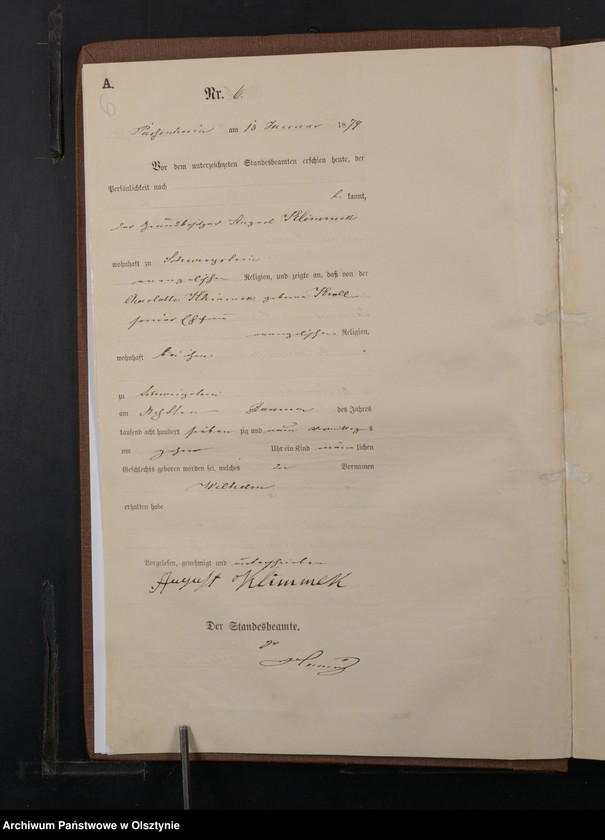 A.
Nr. 6.
am 18 Januar 1879
Vor dem unterzeichneten Standesbeamten erschien heute, der
Persönlichkeit nach
kannt,
der Grundbesitzer August Klimmek
wohnhaft zu Schwegstein
evangelischer Religion, und zeigte an, daß von der
Charlotte Klimmek geborne Krall
seiner Ehefrau
evangelischer Religion,
wohnhaft bei ihm
zu Schwegstein
am Achten Januar des Jahres
tausend acht hundert sieben zig und neun Vormittags
um zehn Uhr ein Kind männlichen
Geschlechts geboren worden sei, welches den Vornamen
Wilhelm
erhalten habe
Vorgelesen, genehmigt und unterschrieben
August Klimmek
Der Standesbeamte.
Archiwum Państwowe w Olsztynie